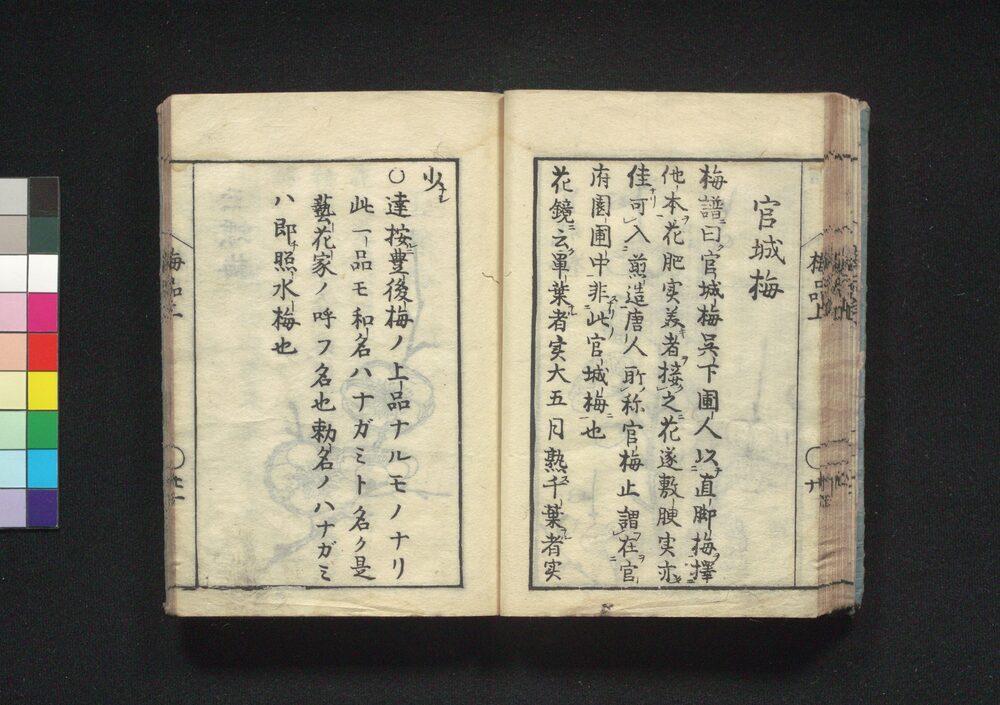 官城梅
梅譜曰官城梅呉下圃人以直脚梅擇
他本花肥実美者接之花遂敷腴実亦
佳可入煎造唐人所称官梅止謂在官
府園圃中非此官城梅也
花鏡云単葉者实大五月熟千葉者实
少
〇達按豊後梅ノ上品ナルモノナリ
此一品モ和名ハナガミト名ク是
藝花家ノ呼フ名也勅名ノハナガミ
ハ即照水梅也
梅品上
廿
梅品上